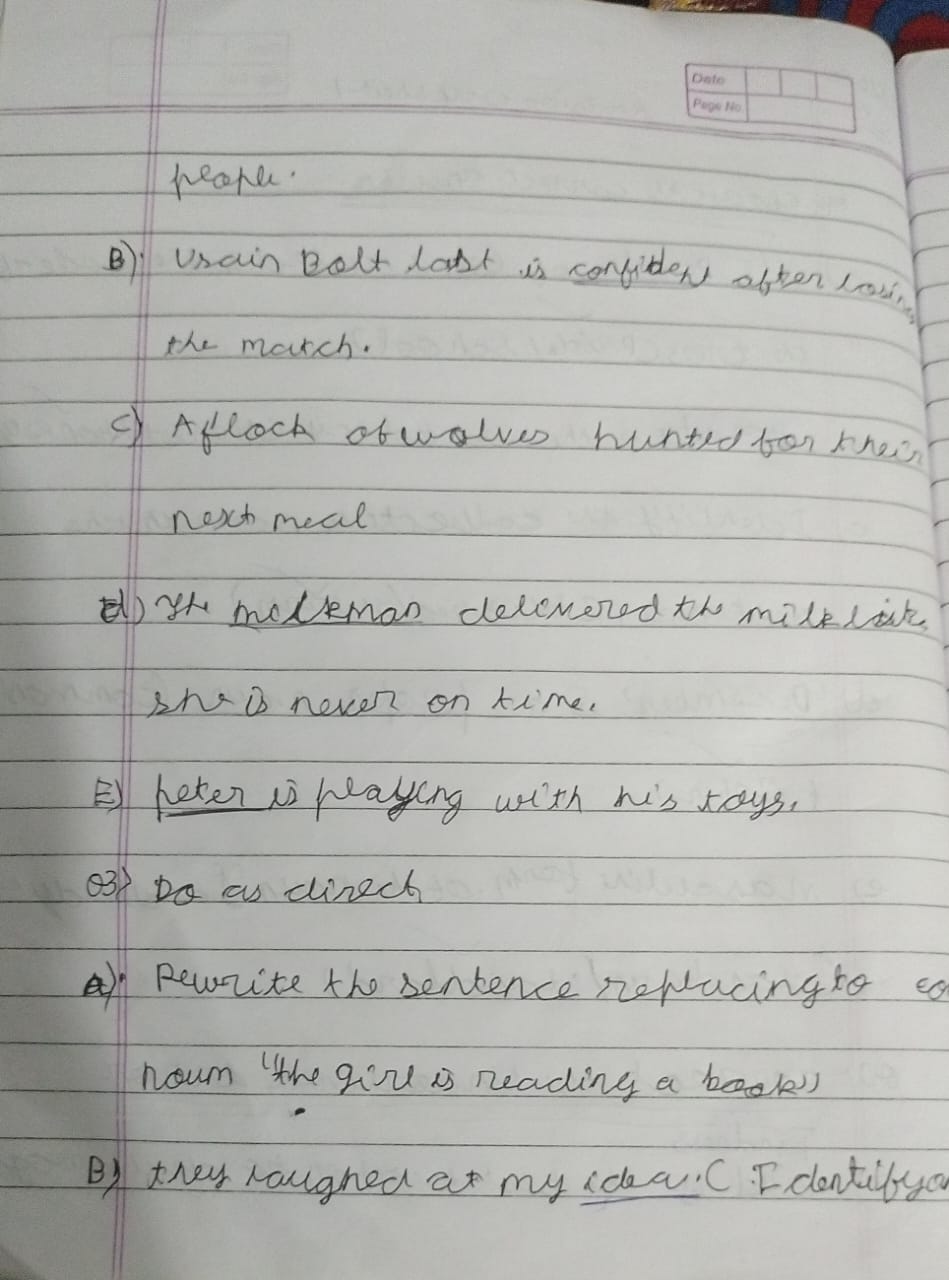 Date
Page No
people.
B) Usain Bolt last is confident after losing
the match.
C) A flock of wolves hunted for their
next meal
d) The milkman delivered the milk late,
she is never on time.
E) peter is playing with his toys.
03) Do as direct
A) Rewrite the sentence replacing to co
noun "the girl is reading a book"
B) they laughed at my idea. ( Identify